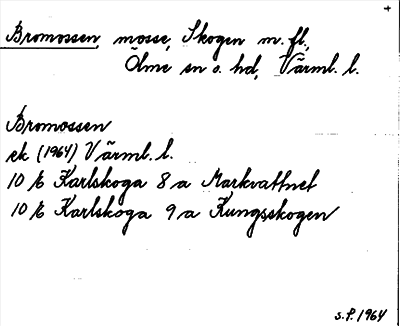 +
Bromossen, mosse, Skogen m. fl.,
Ölme sn o. hd, Värml. l.
Bromossen
ek (1964) Värml. l.
10 E Karlskoga 8 a Markvattnet
10 E Karlskoga 9 a Kungsskogen
S.P. 1964